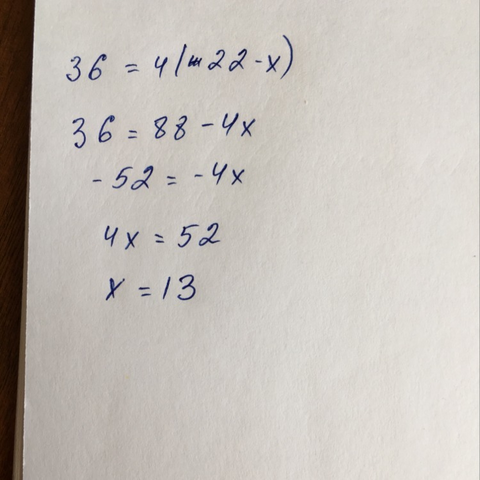 36 = 4(22-x)
36 = 88 - 4x
- 52 = - 4x
4x = 52
x = 13